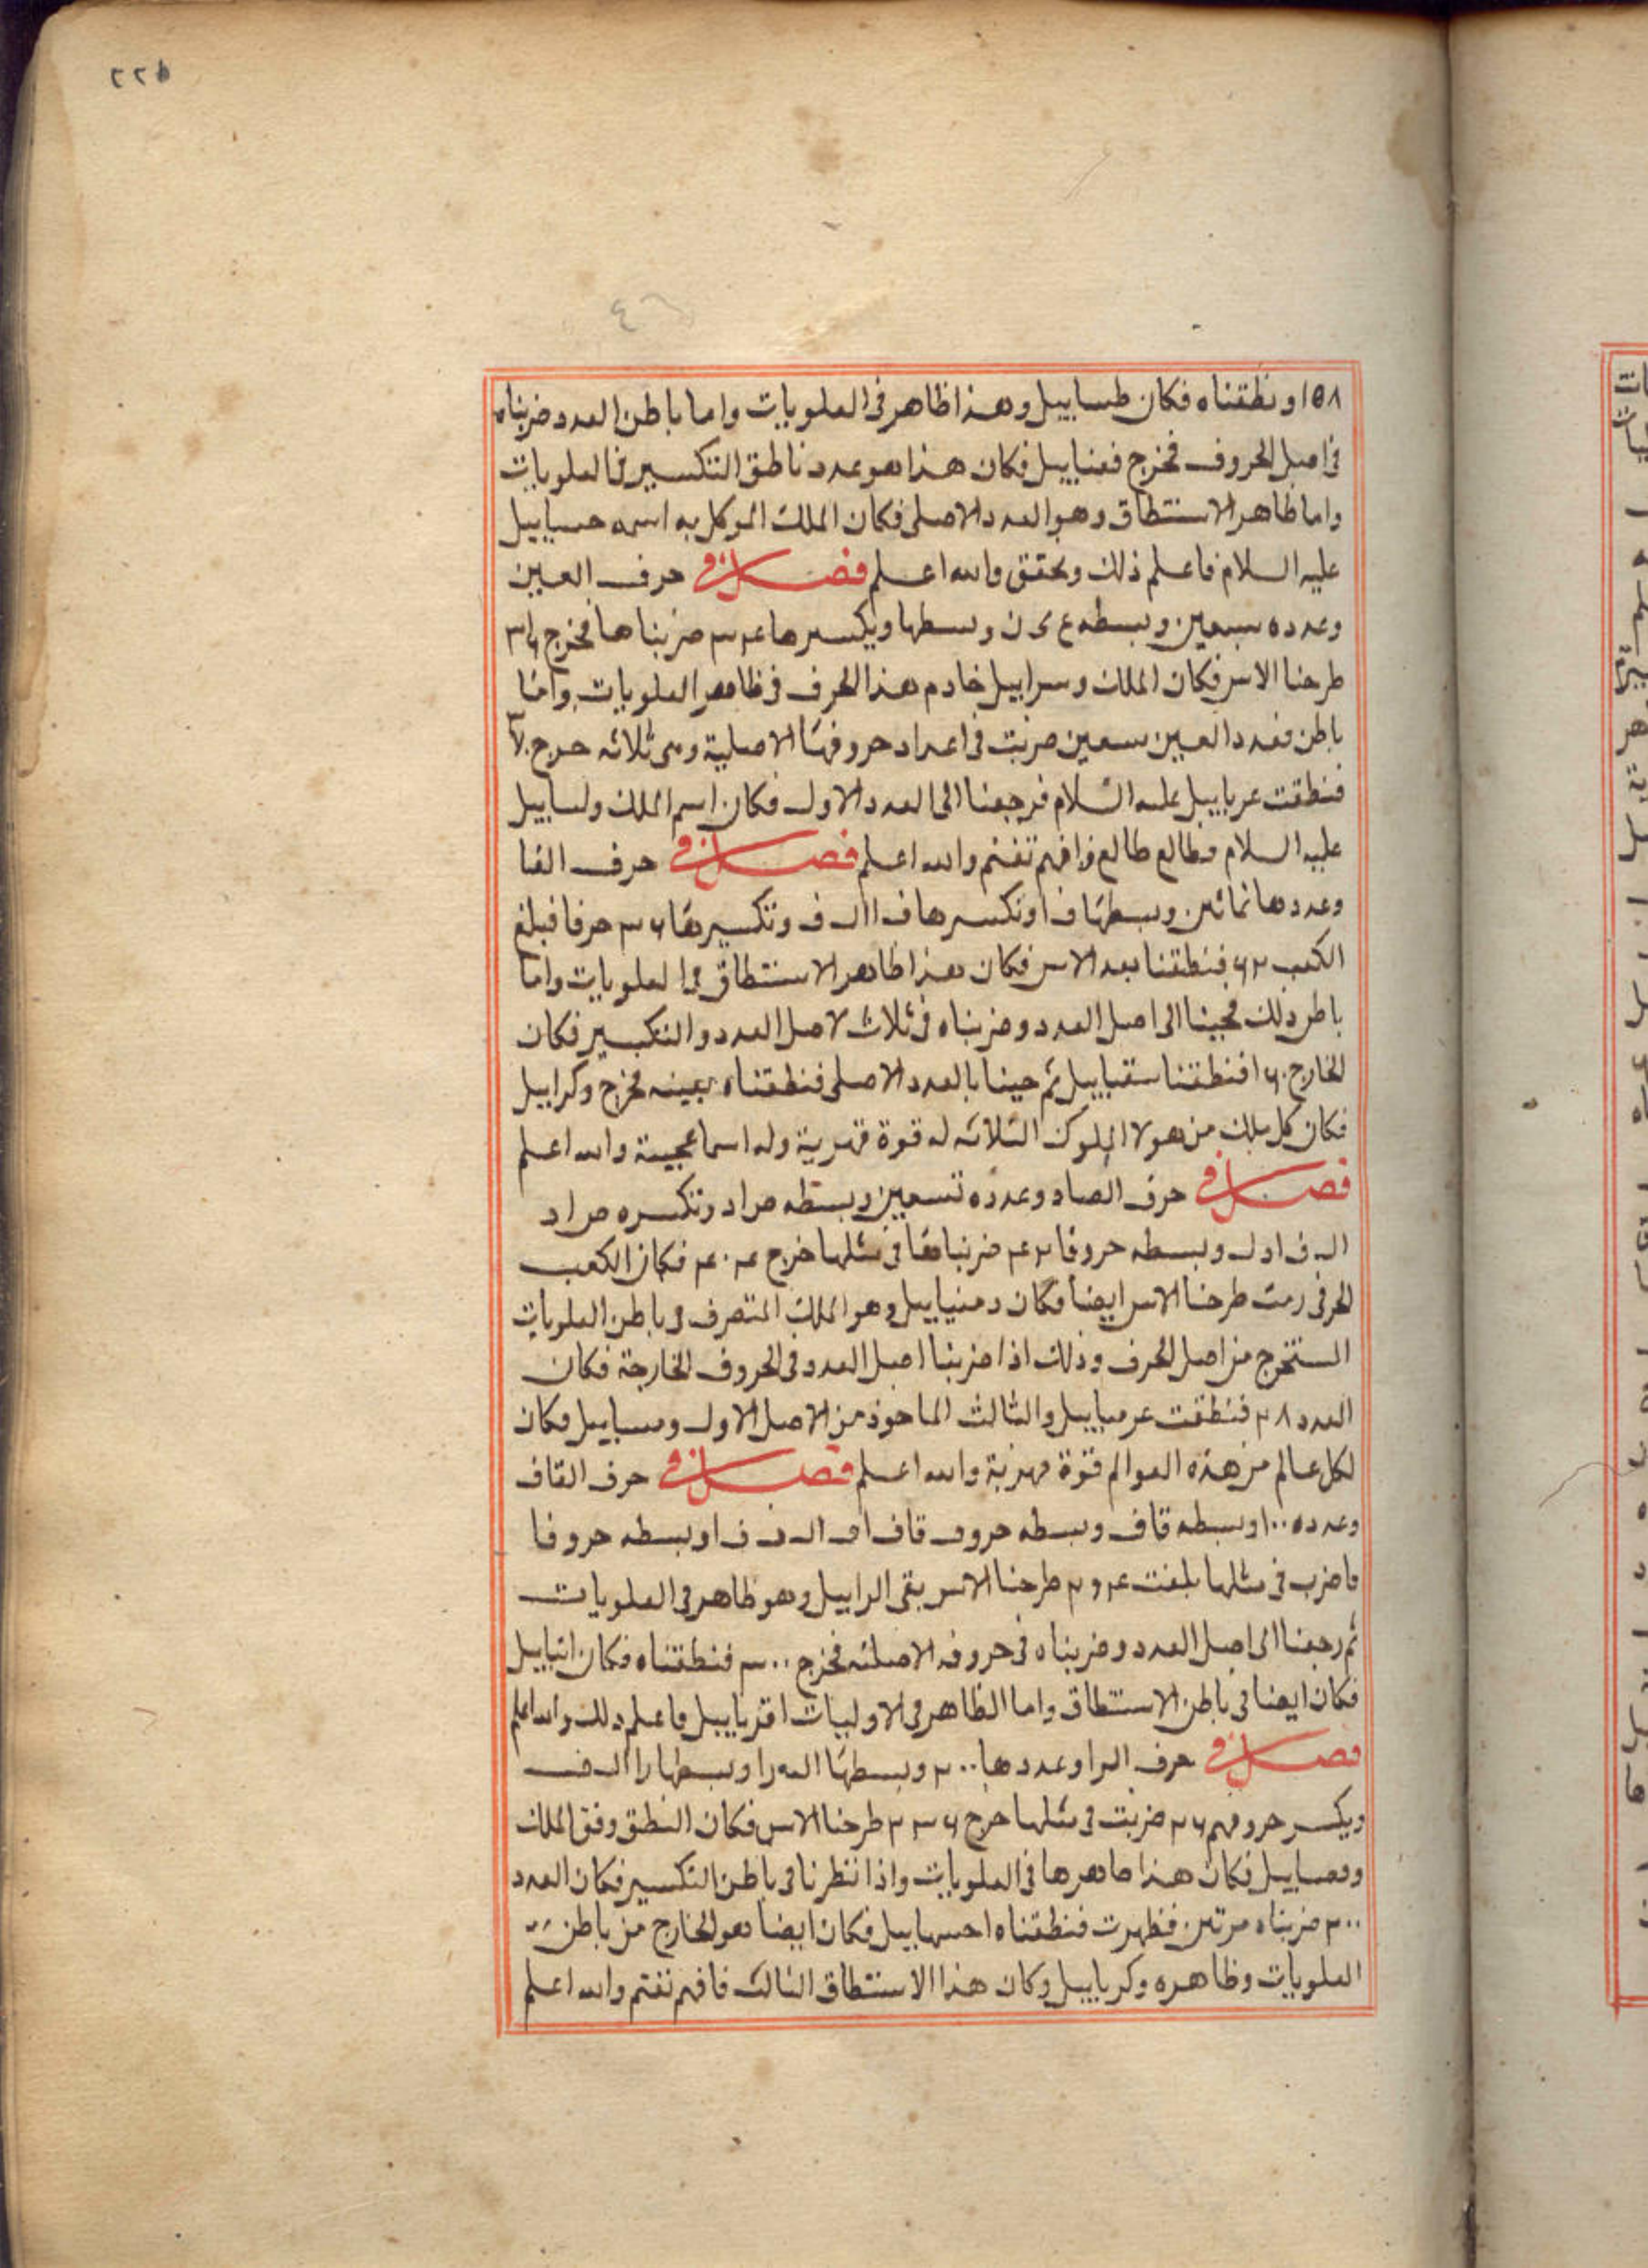 ٢٢٥
١٥٨ ونطقناه فكان طساييل وهذا ظاهر فى العلويات واما باطن العدد ضربناه
فى اصل الحروف فخرج فعناييل فكان هذا هو عدد ناطق التكسير فى العلويات
واما ظاهر الاستنطاق وهو العدد الاصلى فكان الملك الموكل به اسمه حساييل
عليه السلام فاعلم ذلك وتحقق والله اعلم فصل فى حرف العين
وعدده سبعين وبسطه ع ى ن وبسطها ويكسرها ضربناها فخرج
طرحنا الاس فكان الملك وسراييل خادم هذا الحرف فى ظاهر العلويات واما
باطن فعدد العين سبعين ضربت فى اعداد حروفها الاصلية وهى ثلاثه خرج
فنطقت عرياييل عليه السلام فرجعنا الى العدد الاول فكان اسم الملك ولساييل
عليه السلام فطالع طالع فافهم تغنم والله اعلم فصل فى حرف الفا
وعددها ثمانين وبسطها ف ا وتكسرها ف ا ا ل ف وتكسيرها حرفا فبلغ
الكعب فنطقنا بعد الاس فكان هذا ظاهر الاستنطاق فى العلويات واما
باطن ذلك فجينا الى اصل العدد وضربناه فى ثلاث لاصل العدد والتكسير فكان
الخارج فنطقنا سقياييل ثم جينا بالعدد الاصلى فنطقناه بعينه فخرج وكراييل
فكان كل ملك من هولا الملوك الثلاثه له قوة قهرية وله اسما عجيبة والله اعلم
فصل فى حرف الصاد وعدده تسعين وبسطه ص ا د وتكسره ص ا د
ال ف ا د ل وبسطه حروفا ضربناها فى مثلها خرج فكان الكعب
الحرفى رمت طرحنا الاس ايضا فكان دمنياييل وهو الملك المتصرف فى باطن العلويات
المستخرج من اصل الحرف وذلك اذا ضربنا اصل العدد فى الحروف الخارجة فكان
العدد فنطقت عرمياييل والثالث الماخوذ من الاصل الاول ومساييل فكان
لكل عالم من هذه العوالم قوة قهرية والله اعلم فصل فى حرف القاف
وعدده ١٠٠ وبسطه قاف وبسطه حروف قاف ا ف ال ف ف ا وبسطه حروفا
ماضرب فى مثلها بلغت طرحنا الاس بقى الراييل وهو ظاهر فى العلويات
ثم رجعنا الى اصل العدد وضربناه فى حروفه الاصليه فخرج فنطقناه فكان اتياييل
فكان ايضا فى باطن الاستنطاق واما الظاهر فى الاوليات اقرياييل فاعلم ذلك والله اعلم
فصل فى حرف الرا وعددها وبسطها الف را وبسطها را ال ف
ويكسر حروفهم ضربت فى مثلها خرج طرحنا الاس فكان النطق وفق الملك
وفصاييل فكان هذا ظاهرها فى العلويات واذا نظرنا فى باطن التكسير فكان العدد
ضربناه مرتين فظهرت فنطقناه احسهاييل فكان ايضا هو الخارج من باطن
العلويات وظاهره وكرياييل وكان هذا الاستنطاق الثالث فافهم تغنم والله اعلم